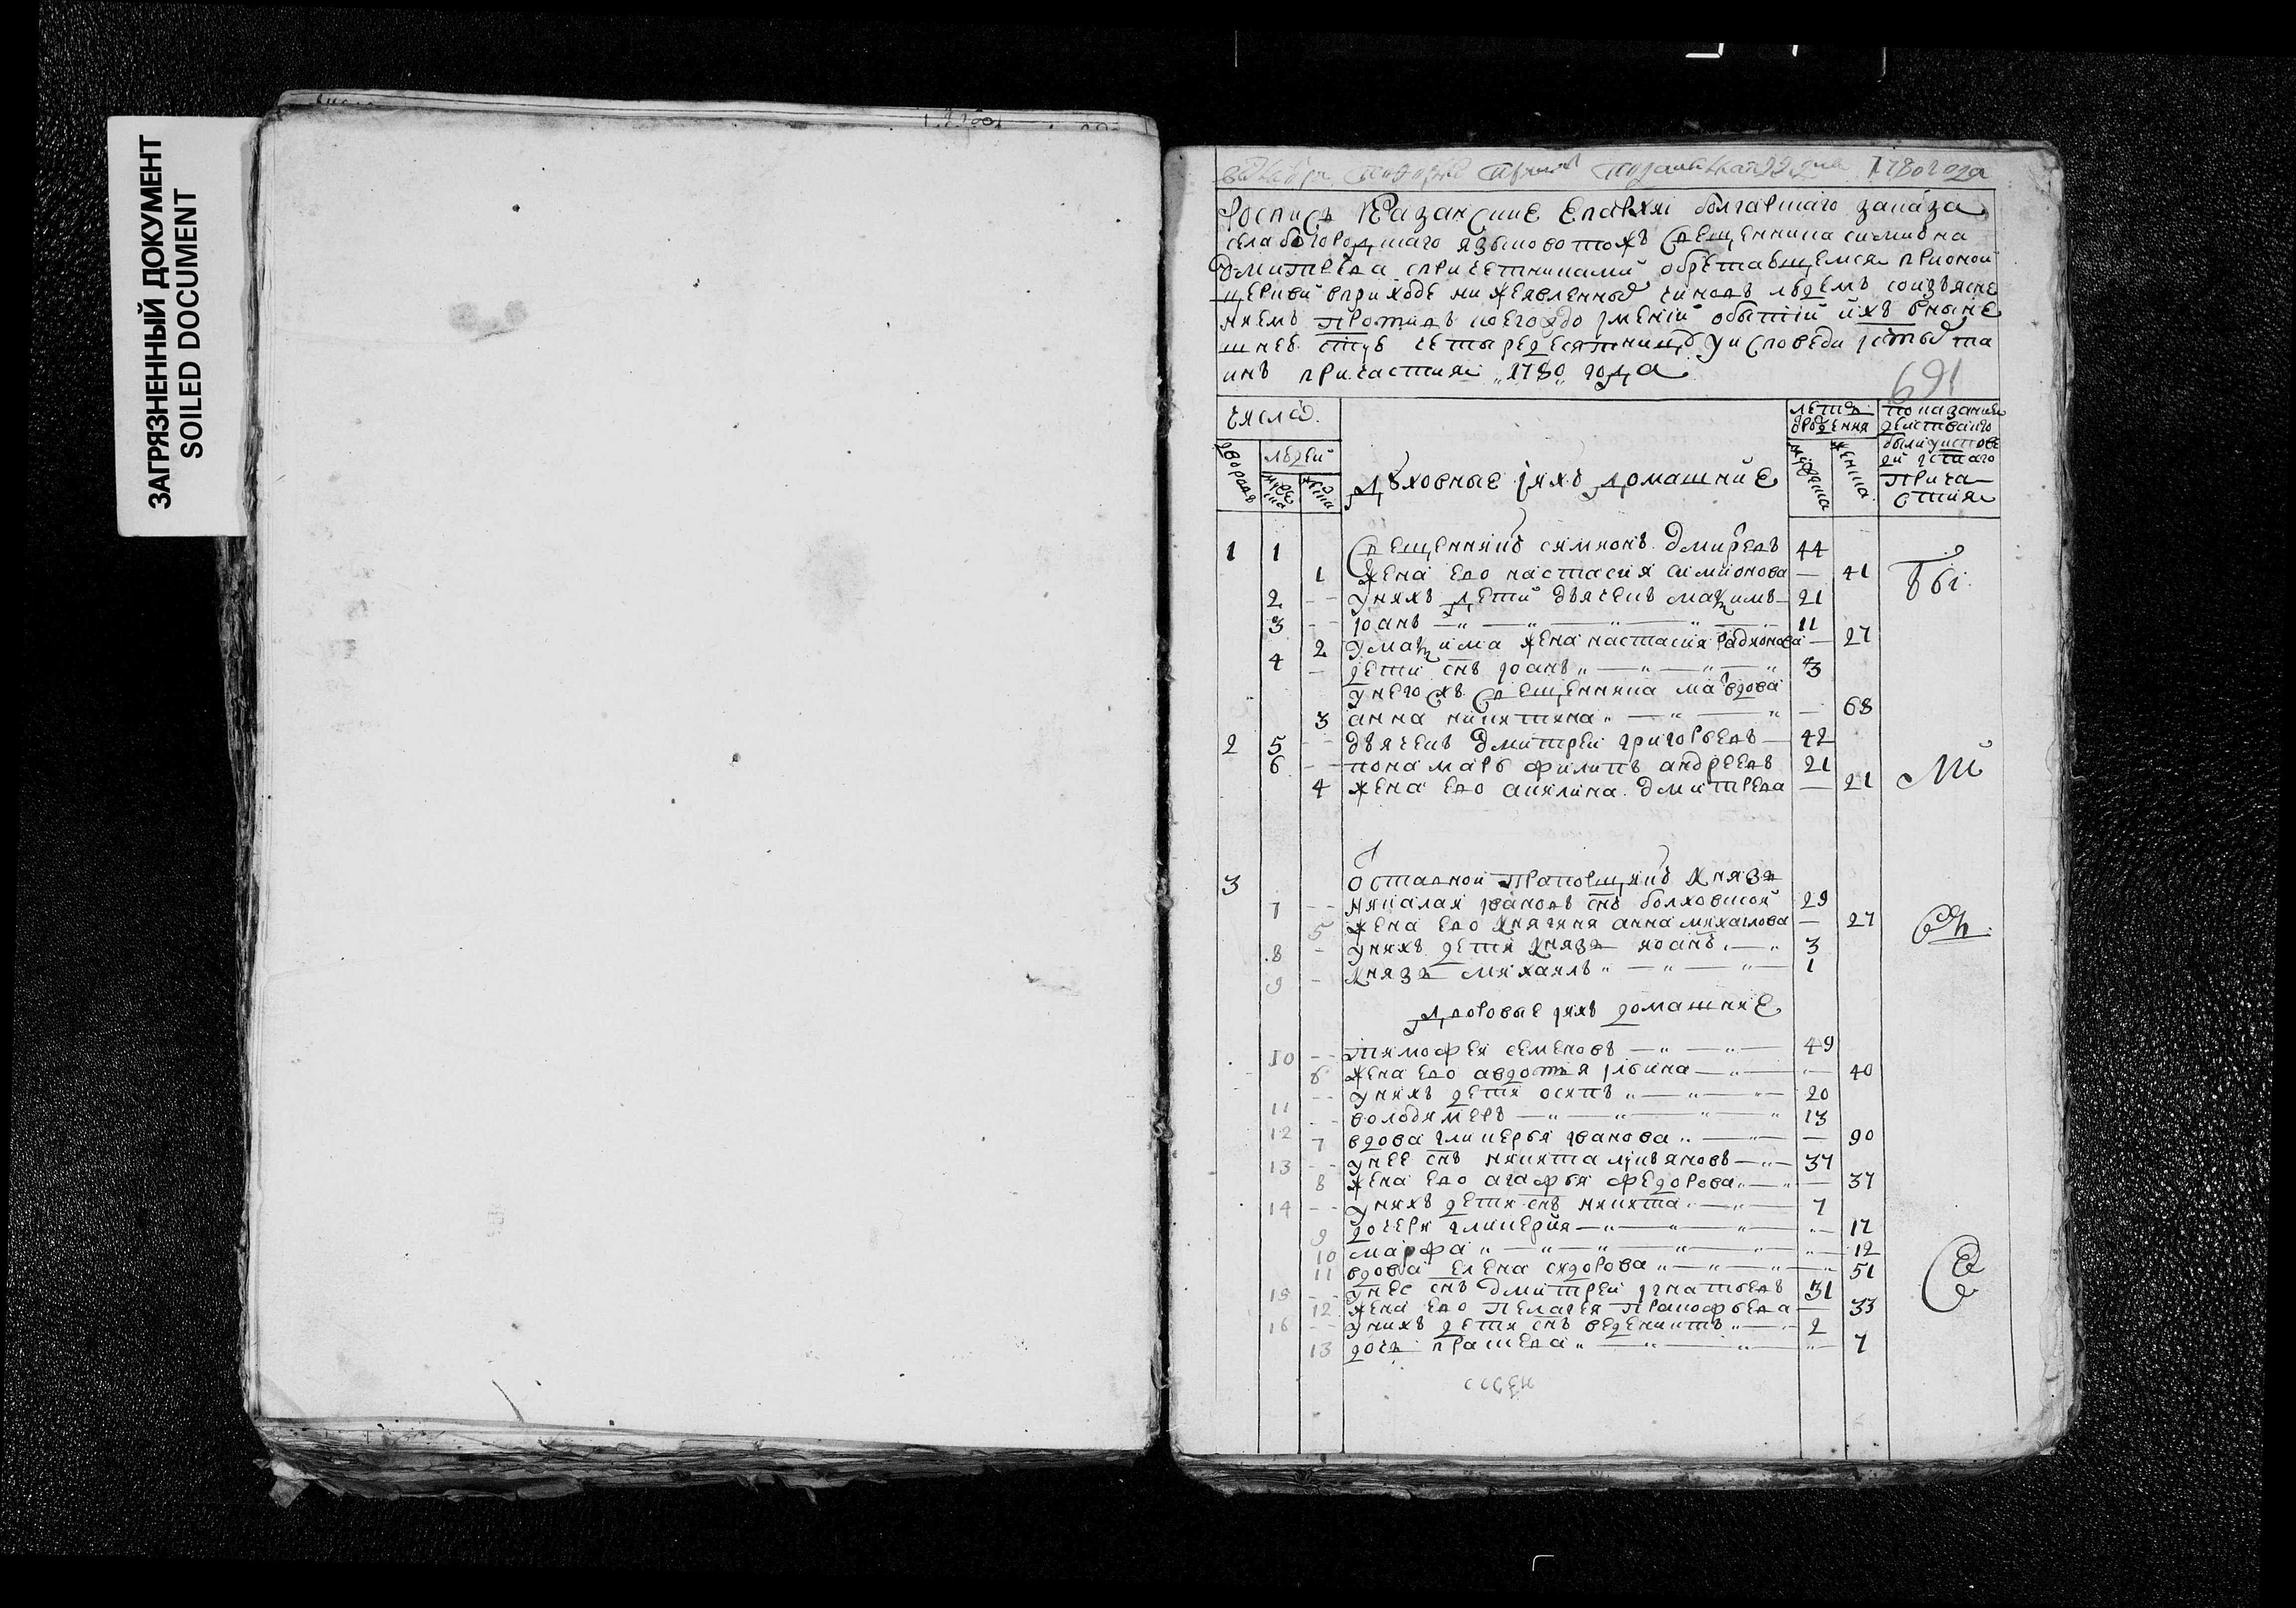 ЗАГРЯЗНЕННЫЙ ДОКУМЕНТ
SOILED DOCUMENT
1780 года
Роспись Казанские Епархии болгаршаго заказа
села богородицкаго языково тожъ Священника симиона
Дмитреева с причетниками обретающемся прионой
церкви вприходе нижеявленных чиновъ людемъ соизъясне
ниемъ противъ коегождо имений обытии ихъ вныне
шнее стую четыредесятницу уисповеди истых та
инъ причастия 1780 года
691
числа
лета от рождения
показание действа кто
дворовъ
людей
мужеска
женска
были уиспове
ди истаго
прича
стия
Духовные ихъ домашние
1 1 Священникъ симионъ Дмиреевъ 44
1 жена ево настасия симионова — 41
Бы
2 унихъ дети дьячекъ максимъ 21
3 иоанъ 11
2 умаксима жена настасия радионова — 27
4 дети снъ иоанъ 3
унегожъ священника мать вдова
3 анна никитина — 68
2 5 дьячекъ Дмитрей григорьевъ 42
6 понамарь филипъ андреевъ 21
4 жена ево акилина Дмитрева — 21
ли
3 отставной прапорщикъ Князь
7 никалай ивановъ снъ болховской 29
5 жена ево Княгиня анна михаилова — 27
8 унихъ дети князь иоанъ 3
9 Князь михаилъ 1
Дворовые ихъ домашние
10 тимофей семеновъ 49
6 жена ево авдотия ильина 40
11 унихъ дети осипъ 20
12 володимеръ 13
7 вдова гликерья иванова — 90
13 унее снъ никита лукьяновъ 37
8 жена ево агафья федорова — 37
14 унихъ дети снъ никита 7
9 дочери гликерия 17
10 марфа 12
11 вдова елена сидорова 51
15 унее снъ Дмитрей игнатьевъ 31
12 жена ево пелагея пракофьева — 33
16 унихъ дети снъ веденихтъ 2
13 дочь прасшева 7